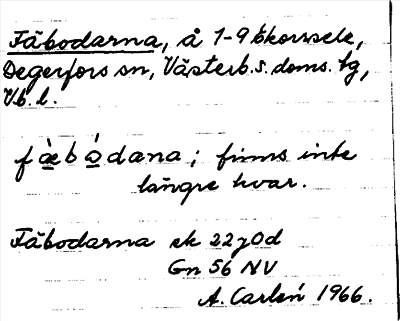 Fäbodarna, å 1-9 Ekorrsele,
Degerfors sn, Västerb. s. doms. tg,
Vb. l.
fæ̀bó̠dana; finns inte
längre kvar.
Fäbodarna ek 22 J 0d
Gn 56 NV
A. Carlén 1966.